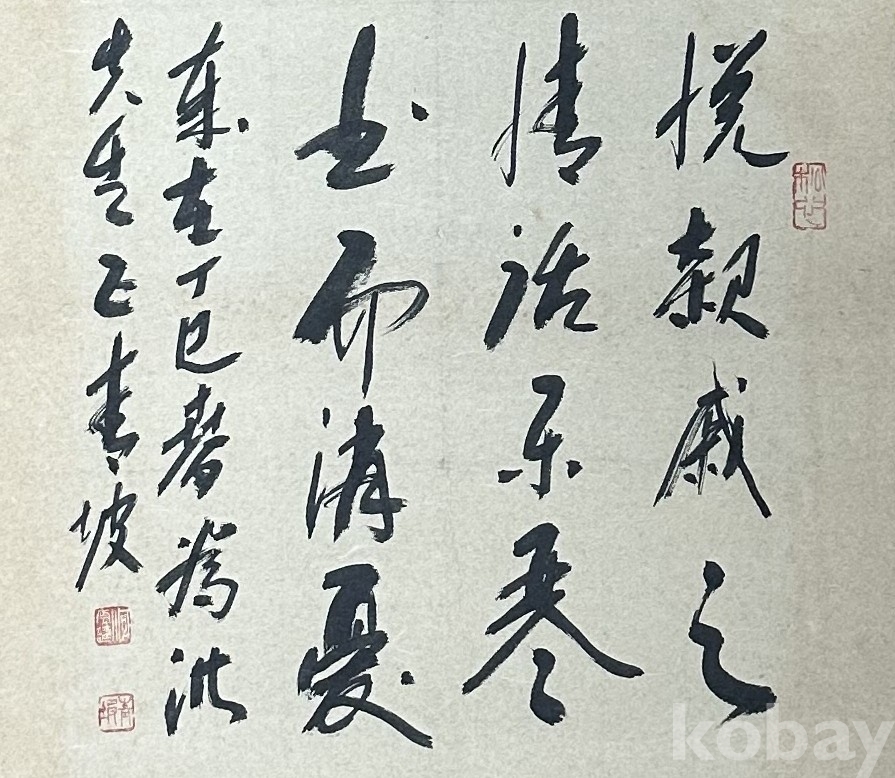 悅親戚之
情話樂琴
書而消憂
在丁巳春爲
先生正 青坡
kobay